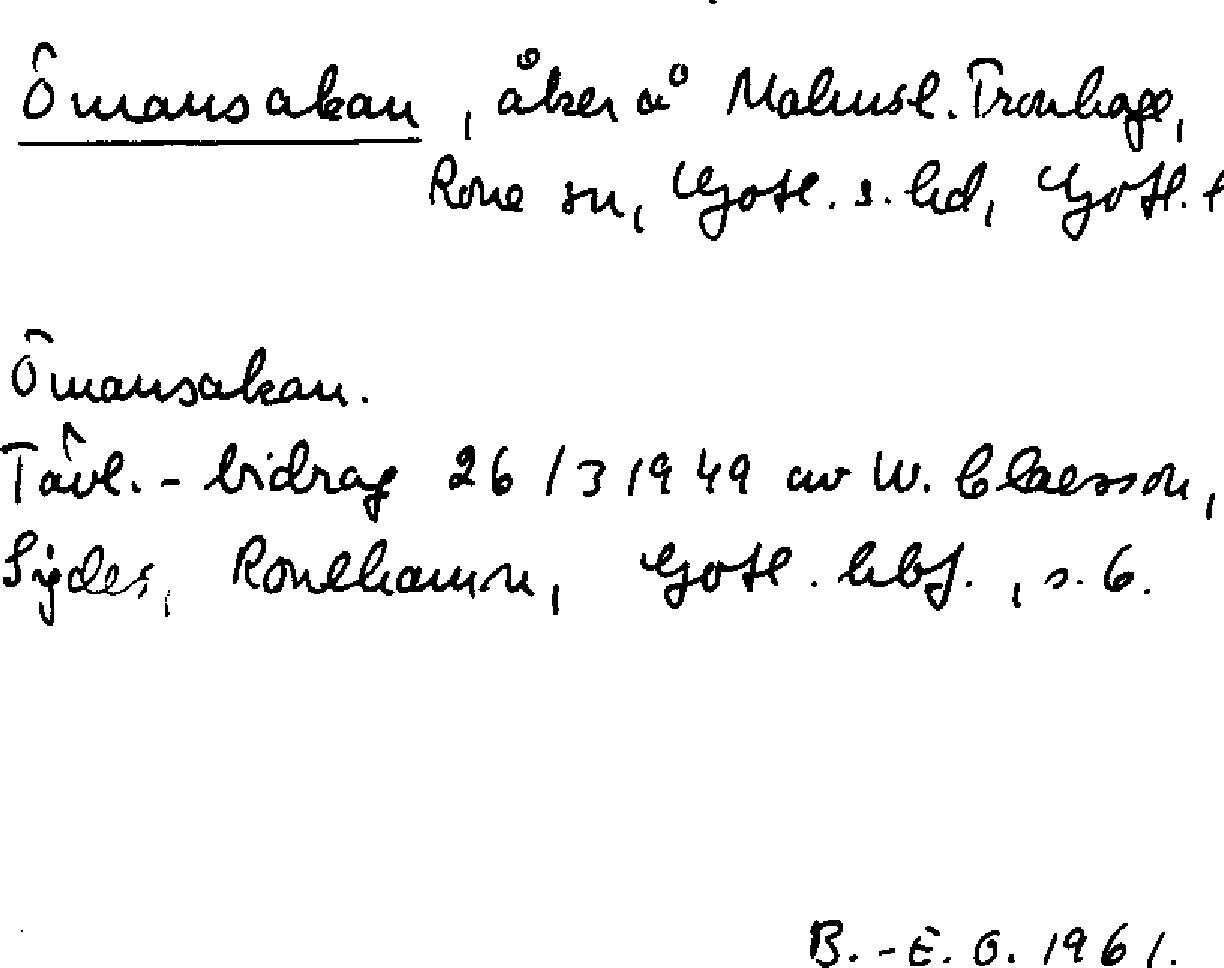 Ömansakan, åker å Malmsl. Tronhage,
Rone sn, Gotl. s. hd, Gotl. l
Ömansakan.
Tävl. - bidrag 26/3 1949 av W. Claesson,
Sigdes, Ronehamn, Gotl. hbf., s. 6.
B.-E. O. 1961.